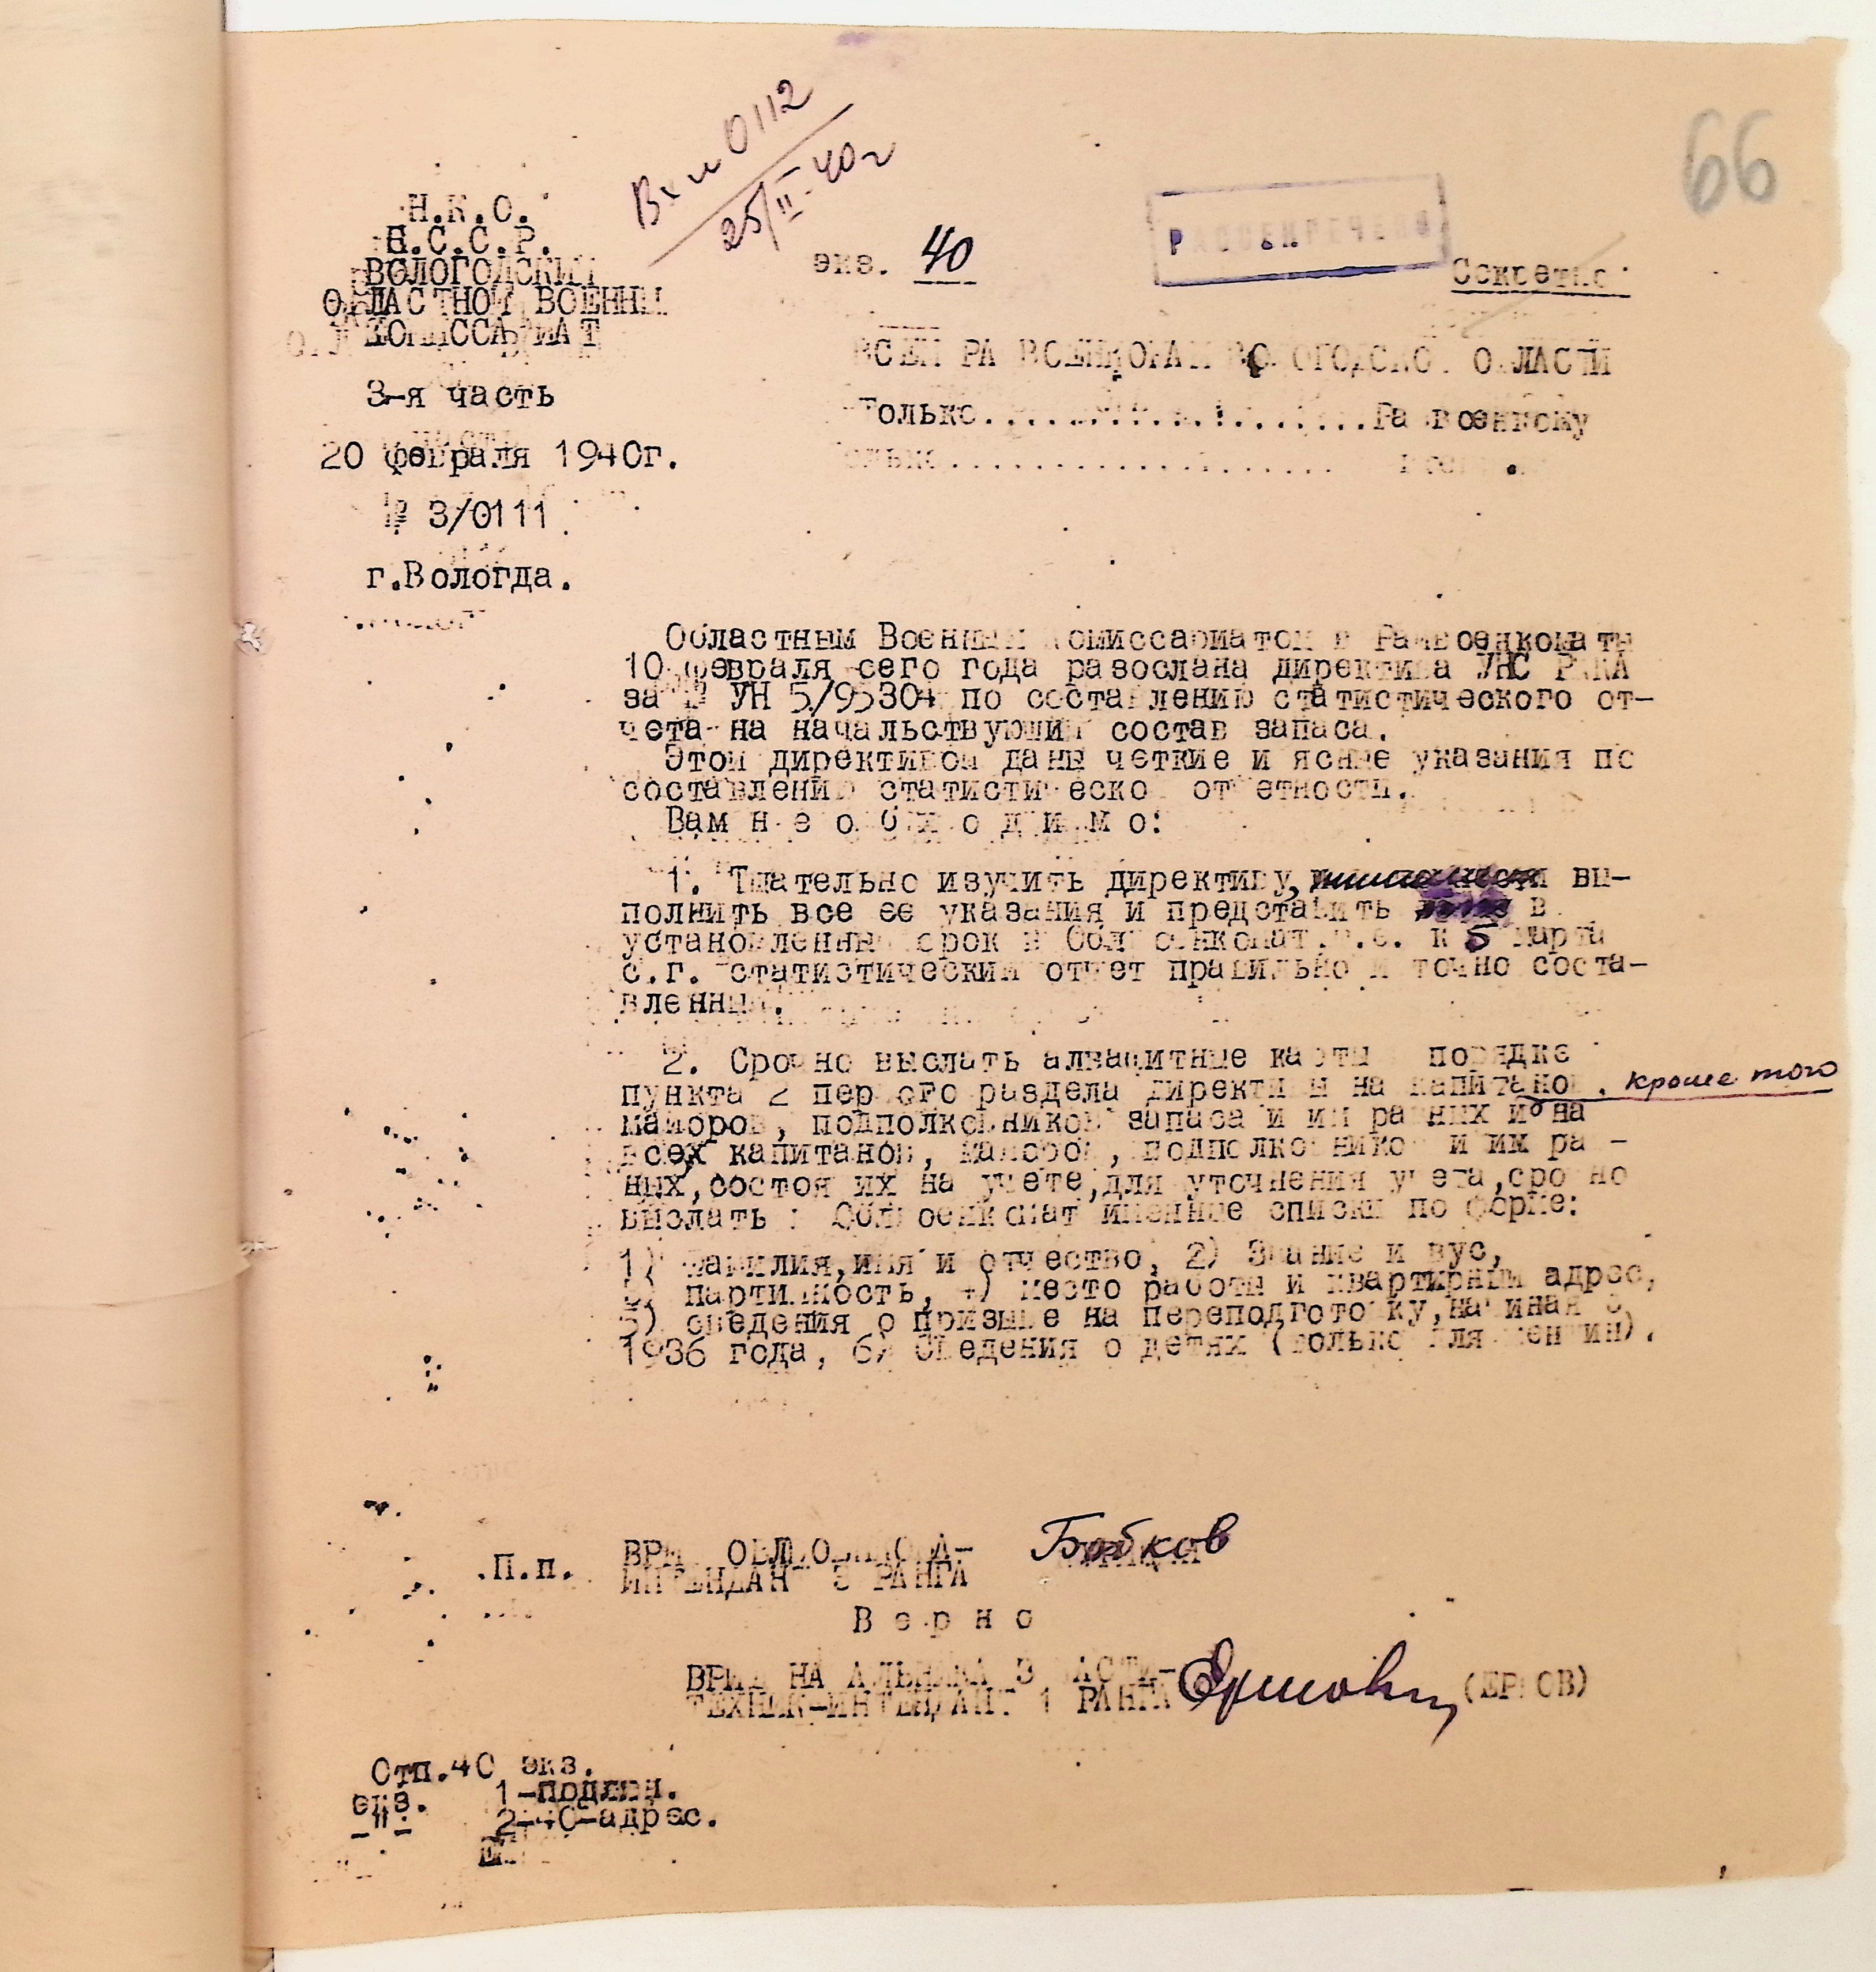 66
Вх № 0112
25/II-40г
Н.К.О.
С.С.С.Р.
ВОЛОГОДСКИЙ
ОБЛАСТНОЙ ВОЕННЫЙ
КОМИССАРИАТ
3-я часть
20 февраля 1940г.
№ 3/0111
г.Вологда.
экз. 40
РАССЕКРЕЧЕНО
Секретно
ВСЕМ РАЙВОЕНКОМАМ ВОЛОГОДСКОЙ ОБЛАСТИ
Только...........................Райвоенкому
Областным Военным Комиссариатом в Райвоенкоматы
10 февраля сего года разослана директива УНС РККА
за № УН 5/95304 по составлению статистического от-
чета на начальствующий состав запаса.
Этой директивой даны четкие и ясные указания по
составлению статистической отчетности.
Вам н е о б х о д и м о:
1. Тщательно изучить директиву, вы-
полнить все ее указания и представить в
установленный срок в Облвоенкомат т.е. к 5 марта
с.г. статистический отчет правильно и точно соста-
вленный.
2. Срочно выслать алфавитные карты в порядке
пункта 2 первого раздела директивы на капитанов, кроме того
майоров, подполковников запаса и им равных и на
всех капитанов, майоров, подполковников и им рав-
ных,состоящих на учете,для уточнения учета,срочно
выслать в Облвоенкомат именные списки по форме:
1) Фамилия,имя и отчество, 2) Звание и вус,
3) партийность, 4) место работы и квартирный адрес,
5) сведения о призыве на переподготовку,начиная с
1936 года, 6) Сведения о детях (только для женщин).
П.п. ВРИД ОБЛВОЕНКОМА- Бобков
ИНТЕНДАНТ 3 РАНГА
В е р н о
ВРИД НАЧАЛЬНИКА 3 ЧАСТИ-
ТЕХНИК-ИНТЕНДАНТ 1 РАНГА Ершов (ЕРШОВ)
Отп.40 экз.
экз. 1-подлин.
-"- 2-40-адрес.